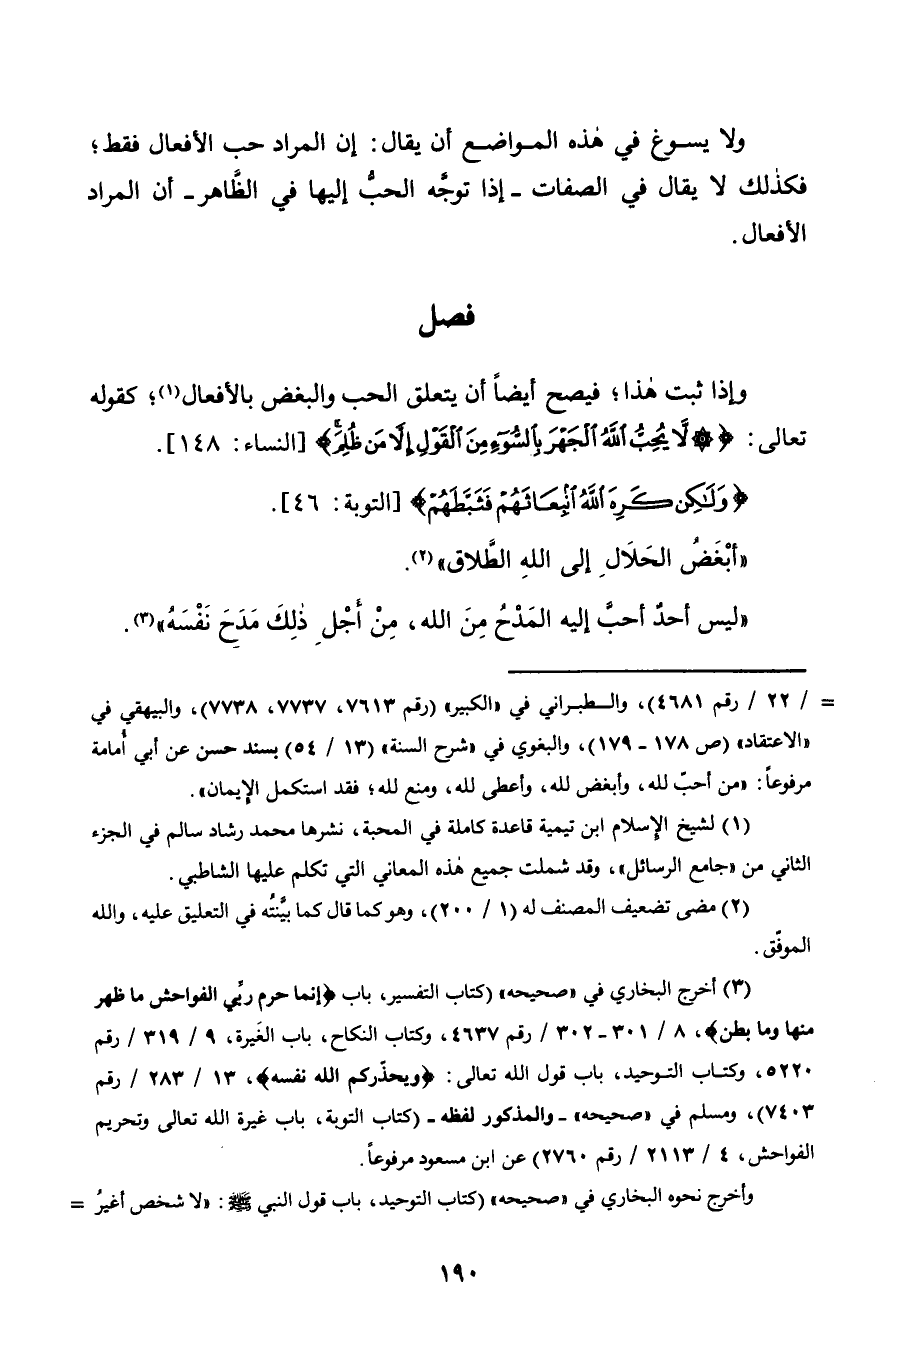 ولا يســوغ في هٰذه المــواضــع أن يقال: إن المراد حب الأفعال فقط؛
فكذٰلك لا يقال في الصفات ـ إذا توجَّه الحبُّ إليها في الظَّاهر ـ أن المراد
الأفعال.
فصل
وإذا ثبت هٰذا؛ فيصح أيضاً أن يتعلق الحب والبغض بالأفعال(١)؛ كقوله
تعالى: ﴿۞ لَّا يُحِبُّ ٱللَّهُ ٱلْجَهْرَ بِٱلسُّوٓءِ مِنَ ٱلْقَوْلِ إِلَّا مَن ظُلِمَ ۚ﴾ [النساء: ١٤٨].
﴿وَلَٰكِن كَرِهَ ٱللَّهُ ٱنۢبِعَاثَهُمْ فَثَبَّطَهُمْ﴾ [التوبة: ٤٦].
«أَبْغَضُ الحَلَالِ إلى اللهِ الطَّلاق»(٢).
«ليس أحدٌ أحبَّ إليه المَدْحُ مِنَ الله، مِنْ أَجْلِ ذٰلِكَ مَدَحَ نَفْسَهُ»(٣).
= / ٢٢ / رقم ٤٦٨١)، والــطبــراني في «الكبير» (رقم ٧٦١٣، ٧٧٣٧، ٧٧٣٨)، والبيهقي في
«الاعتقاد» (ص ١٧٨ ـ ١٧٩)، والبغوي في «شرح السنة» (١٣ / ٥٤) بسند حسن عن أبي أُمامة
مرفوعاً: «من أحبّ لله، وأبغض لله، وأعطى لله، ومنع لله؛ فقد استكمل الإيمان».
(١) لشيخ الإسلام ابن تيمية قاعدة كاملة في المحبة، نشرها محمد رشاد سالم في الجزء
الثاني من «جامع الرسائل»، وقد شملت جميع هٰذه المعاني التي تكلم عليها الشاطبي.
(٢) مضى تضعيف المصنف له (١ / ٢٠٠)، وهو كما قال كما بيَّنتُه في التعليق عليه، والله
الموفّق.
(٣) أخرج البخاري في «صحيحه» (كتاب التفسير، باب ﴿إنما حرم ربِّي الفواحش ما ظهر
منها وما بطن﴾، ٨ / ٣٠١ ـ ٣٠٢ / رقم ٤٦٣٧، وكتاب النكاح، باب الغَيرة، ٩ / ٣١٩ / رقم
٥٢٢٠، وكتــاب التــوحيد، باب قول الله تعالى: ﴿ويحذّركم الله نفسه﴾، ١٣ / ٢٨٣ / رقم
٧٤٠٣)، ومسلم في «صحيحه» ـ والمذكور لفظه ـ (كتاب التوبة، باب غيرة الله تعالى وتحريم
الفواحش، ٤ / ٢١١٣ / رقم ٢٧٦٠) عن ابن مسعود مرفوعاً.
وأخرج نحوه البخاري في «صحيحه» (كتاب التوحيد، باب قول النبي ﷺ: «لا شخص أغيرُ =
١٩٠